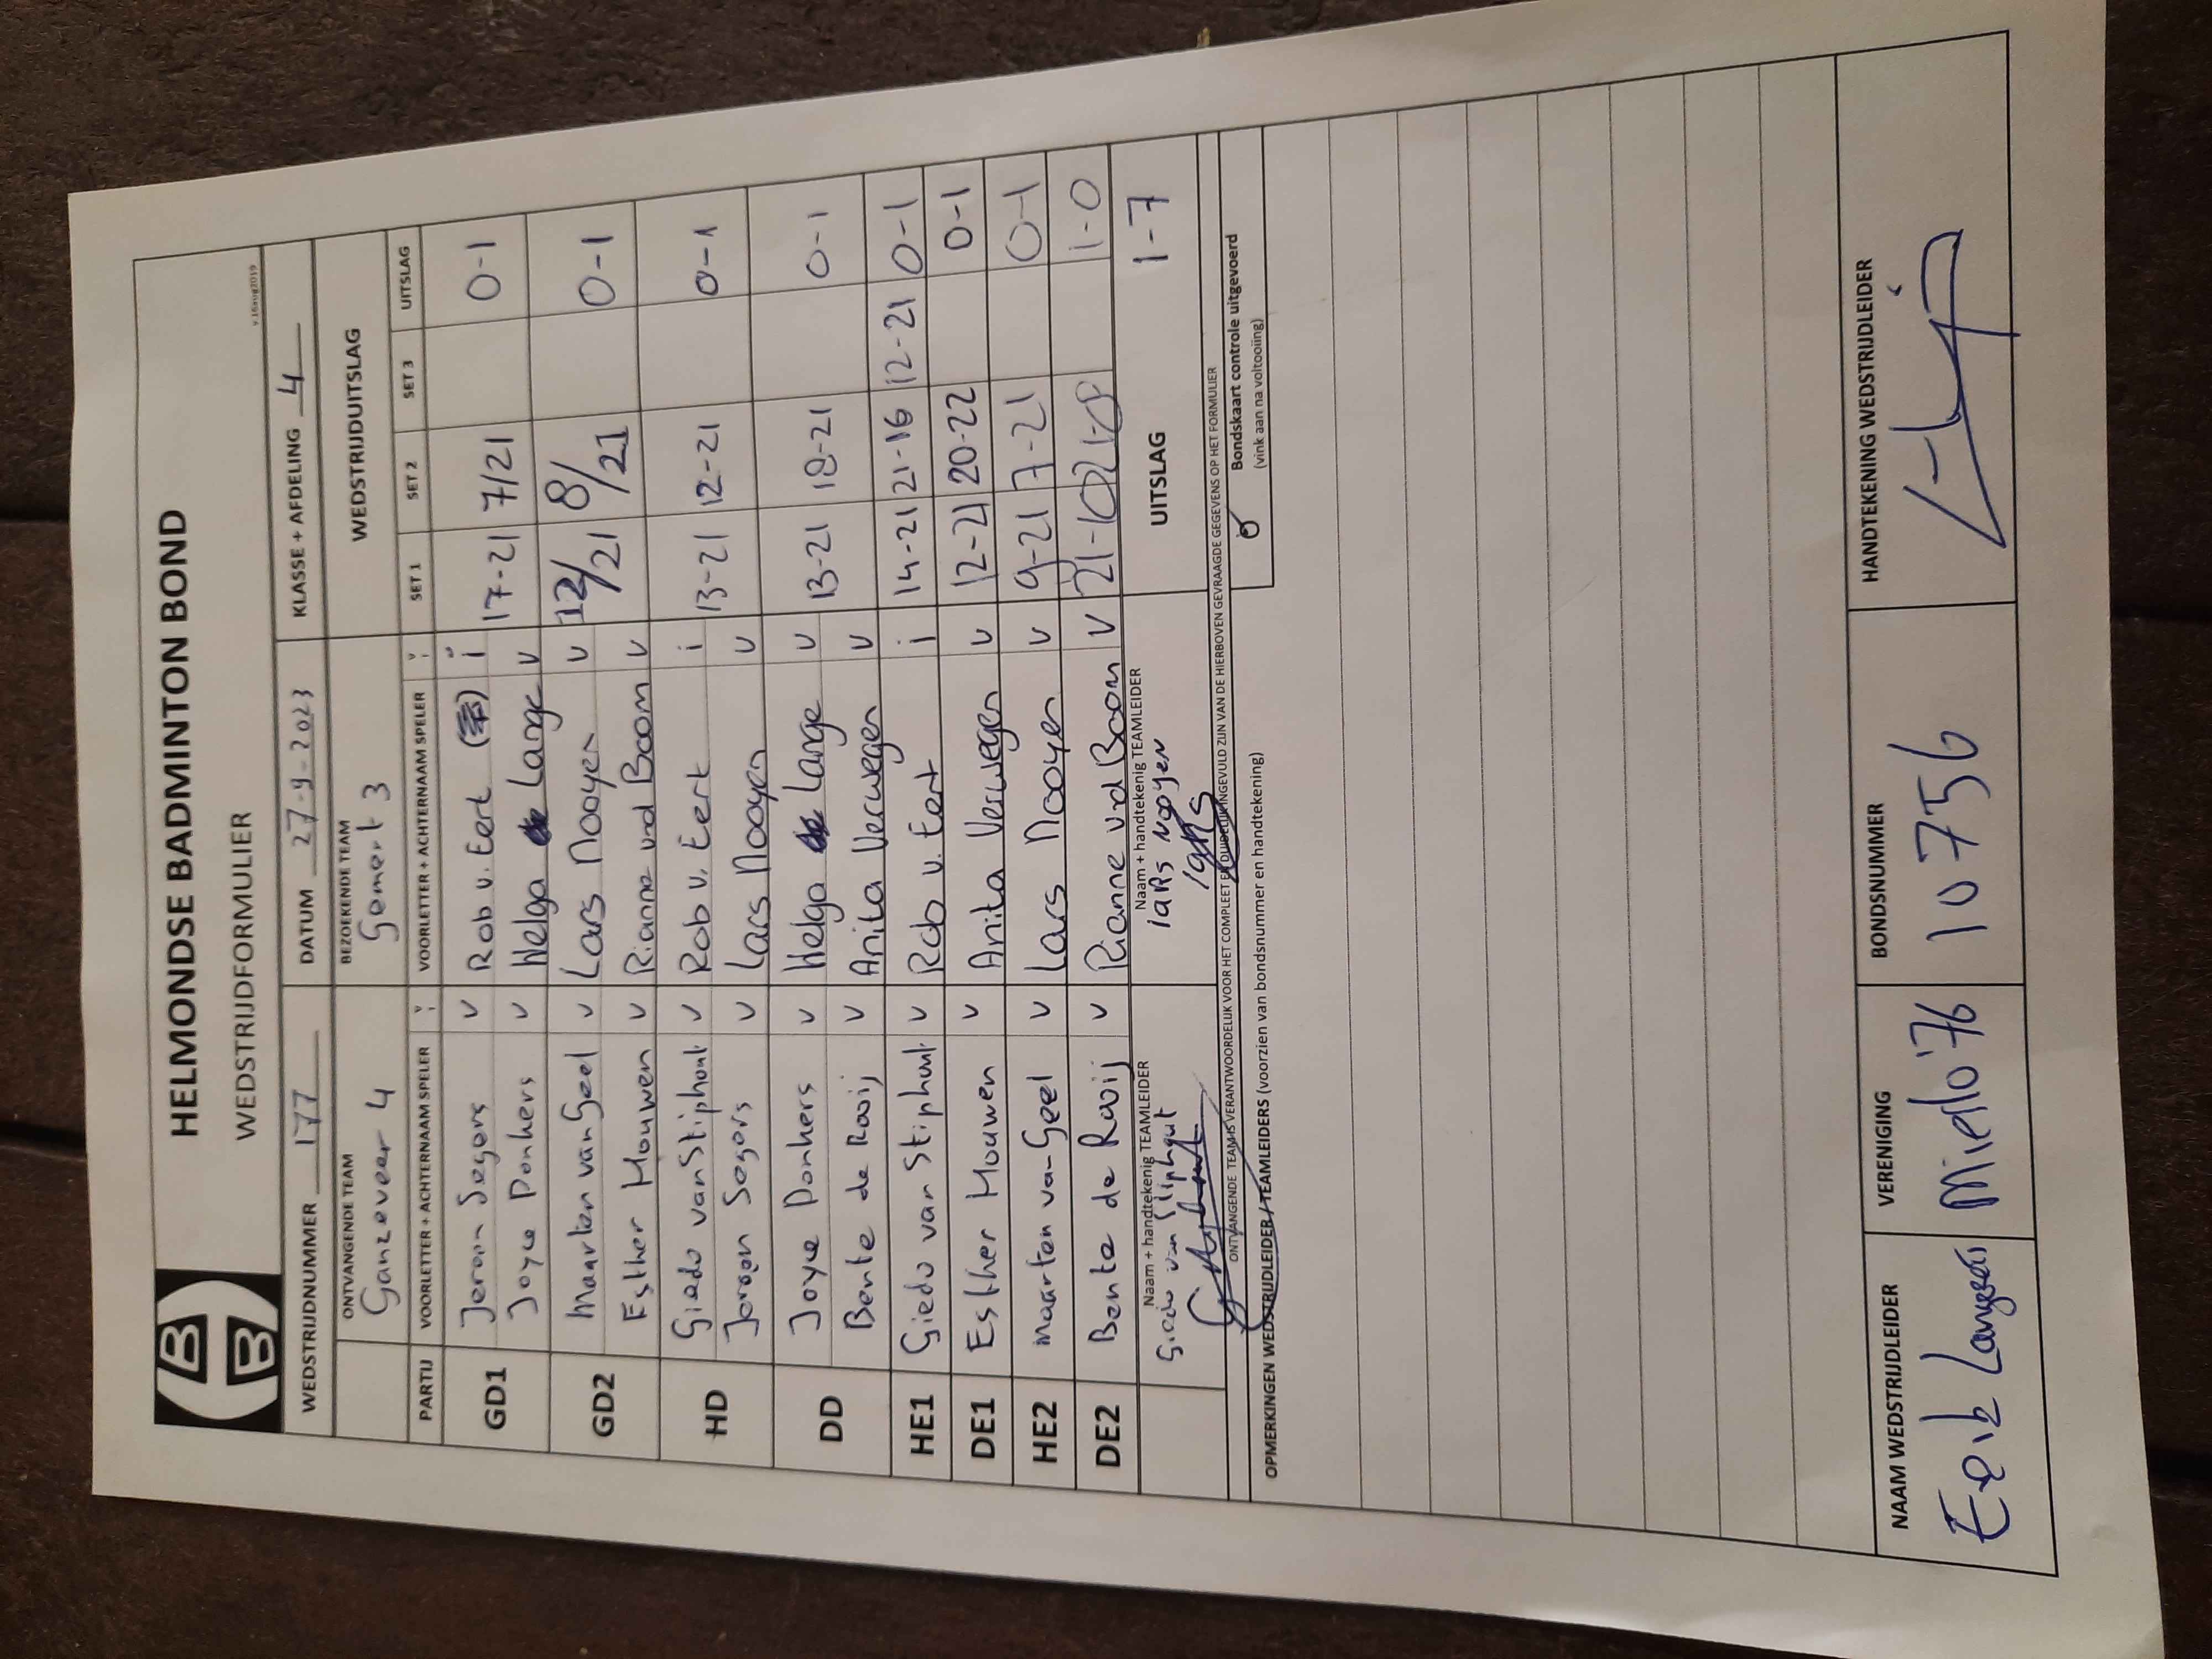 HELMONDSE BADMINTON BOND
WEDSTRIJDFORMULIER
v.16aug2019
WEDSTRIJDNUMMER 177 DATUM 27-9-2023 KLASSE + AFDELING 4
ONTVANGENDE TEAM BEZOEKENDE TEAM WEDSTRIJDUITSLAG
Ganzeveer 4 Gemert 3
PARTIJ VOORLETTER + ACHTERNAAM SPELER VOORLETTER + ACHTERNAAM SPELER SET 1 SET 2 SET 3 UITSLAG
GD1 Jeroen Segers v Rob v. Eert i 17-21 7/21 0-1
Joyce Donkers v Helga de Lange v
GD2 Maarten van Geel v Lars Nooyen v 12/21 8/21 0-1
Esther Mouwen v Rianne vnd Boom v
HD Giedo van Stiphout v Rob v. Eert i 13-21 12-21 0-1
Jeroen Segers v Lars Nooyen v
DD Joyce Donkers v Helga de Lange v 13-21 18-21 0-1
Bente de Rooij v Anita Verwegen v
HE1 Giedo van Stiphout v Rob v. Eert i 14-21 21-16 12-21 0-1
DE1 Esther Mouwen v Anita Verwegen v 12-21 20-22 0-1
HE2 Maarten van Geel v Lars Nooyen v 9-21 7-21 0-1
DE2 Bente de Rooij v Rianne vd Boom v 21-10 21-8 1-0
Naam + handtekenig TEAMLEIDER Naam + handtekenig TEAMLEIDER UITSLAG 1-7
Giedo van Stiphout lars Nooyen
ONTVANGENDE TEAM IS VERANTWOORDELIJK VOOR HET COMPLEET EN DUIDELIJK INGEVULD ZIJN VAN DE HIERBOVEN GEVRAAGDE GEGEVENS OP HET FORMULIER
Bondskaart controle uitgevoerd
(vink aan na voltooiing)
OPMERKINGEN WEDSTRIJDLEIDER / TEAMLEIDERS (voorzien van bondsnummer en handtekening)
NAAM WEDSTRIJDLEIDER VERENIGING BONDSNUMMER HANDTEKENING WEDSTRIJDLEIDER
Erik Mierlo '76 10756